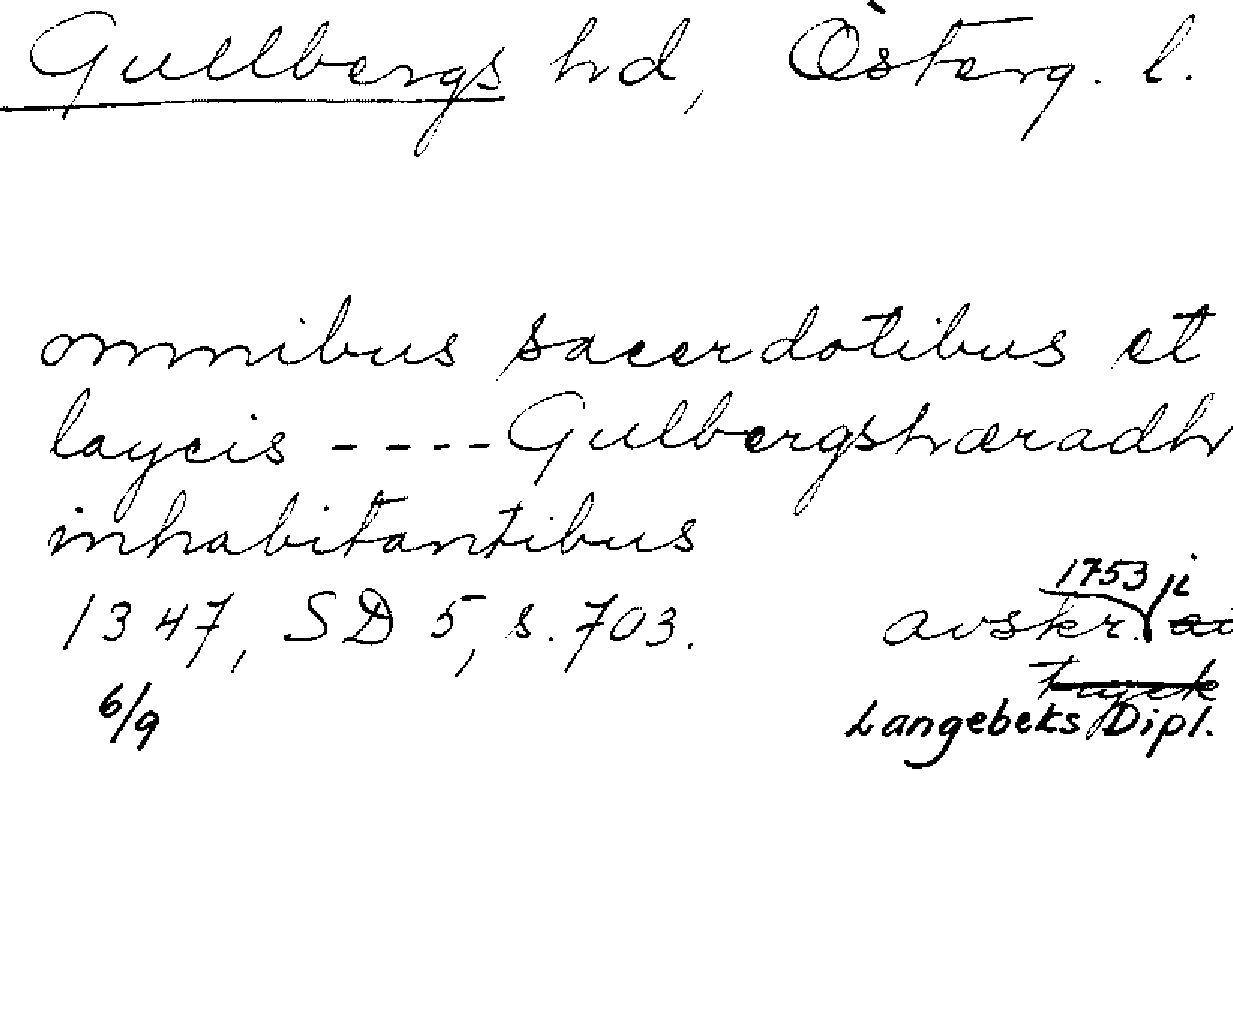 Gullbergs hd, Österg. l.
omnibus sacerdotibus et
laycis ---- Gulbergshæradh
inhabitantibus
1347, SD 5, s. 703.
avskr. 1753 i
tryck
6/9
Langebeks Dipl.